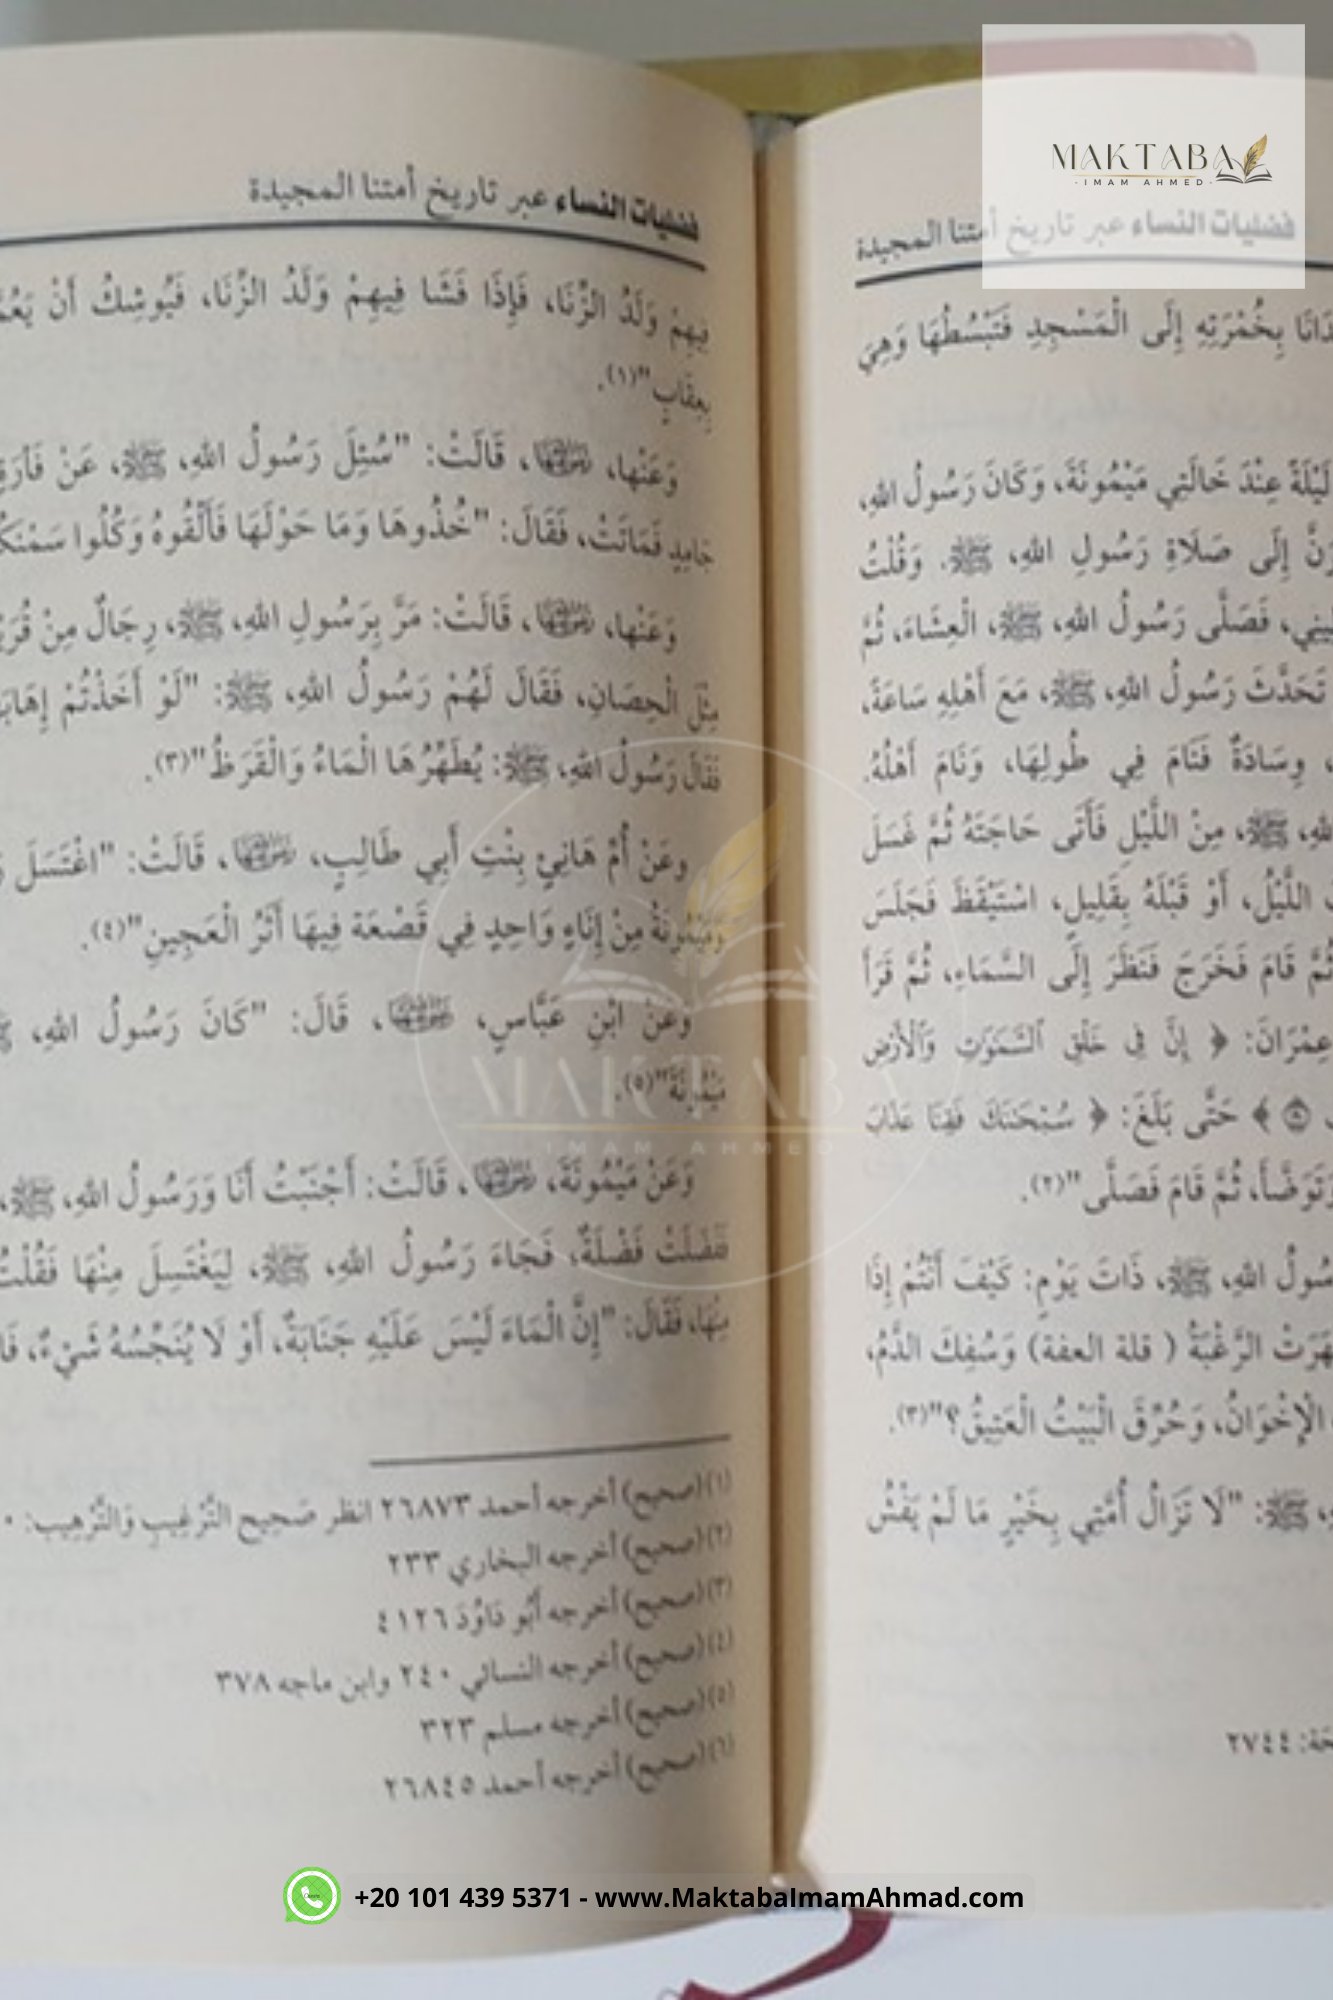 MAKTABA
- IMAM AHMED -
فضليات النساء عبر تاريخ أمتنا المجيدة
بِخُمْرَتِهِ إِلَى الْمَسْجِدِ فَتَبْسُطُهَا وَهِيَ
لَيْلَةً عِنْدَ خَالَتِي مَيْمُونَةَ، وَكَانَ رَسُولُ اللهِ،
إِلَى صَلَاةِ رَسُولِ اللهِ، ﷺ. وَقُلْتُ
فَصَلَّى رَسُولُ اللهِ، ﷺ، الْعِشَاءَ، ثُمَّ
تَحَدَّثَ رَسُولُ اللهِ، ﷺ، مَعَ أَهْلِهِ سَاعَةً،
وِسَادَةٌ فَنَامَ فِي طُولِهَا، وَنَامَ أَهْلُهُ.
ﷺ، مِنْ اللَّيْلِ فَأَتَى حَاجَتَهُ ثُمَّ غَسَلَ
اللَّيْلُ، أَوْ قَبْلَهُ بِقَلِيلٍ، اسْتَيْقَظَ فَجَلَسَ
ثُمَّ قَامَ فَخَرَجَ فَنَظَرَ إِلَى السَّمَاءِ، ثُمَّ قَرَأَ
عِمْرَانَ: ﴿ إِنَّ فِي خَلْقِ ٱلسَّمَٰوَٰتِ وَٱلْأَرْضِ
﴾ حَتَّى بَلَغَ: ﴿ سُبْحَٰنَكَ فَقِنَا عَذَابَ
ثُمَّ قَامَ فَصَلَّى"(٢).
ﷺ، ذَاتَ يَوْمٍ: كَيْفَ أَنْتُمْ إِذَا
الرَّغْبَةُ ( قلة العفة) وَسُفِكَ الدَّمُ،
الْإِخْوَانُ، وَحُرِّقَ الْبَيْتُ الْعَتِيقُ؟"(٣).
ﷺ: "لَا تَزَالُ أُمَّتِي بِخَيْرٍ مَا لَمْ يَفْشُ
٢٧٤٤
فضليات النساء عبر تاريخ أمتنا المجيدة
فِيهِمْ وَلَدُ الزِّنَا، فَإِذَا فَشَا فِيهِمْ وَلَدُ الزِّنَا، فَيُوشِكُ أَنْ
بِعِقَابٍ"(١).
وَعَنْها، رضي الله عنها، قَالَتْ: "سُئِلَ رَسُولُ اللهِ، ﷺ، عَنْ
جَامِدٍ فَمَاتَتْ، فَقَالَ: "خُذُوهَا وَمَا حَوْلَهَا فَأَلْقُوهُ وَكُلُوا
وَعَنْها، رضي الله عنها، قَالَتْ: مَرَّ بِرَسُولِ اللهِ، ﷺ، رِجَالٌ مِنْ
مِثْلَ الْحِصَانِ، فَقَالَ لَهُمْ رَسُولُ اللهِ، ﷺ: "لَوْ أَخَذْتُمْ
فَقَالَ رَسُولُ اللهِ، ﷺ: يُطَهِّرُهَا الْمَاءُ وَالْقَرَظُ"(٣).
وعَنْ أُمِّ هَانِئٍ بِنْتِ أَبِي طَالِبٍ، رضي الله عنها، قَالَتْ: "اغْتَسَلَ
وَمَيْمُونَةُ مِنْ إِنَاءٍ وَاحِدٍ فِي قَصْعَةٍ فِيهَا أَثَرُ الْعَجِينِ"(٤).
وعَنْ ابْنِ عَبَّاسٍ، رضي الله عنهما، قَالَ: "كَانَ رَسُولُ اللهِ،
مَيْمُونَةَ"(٥).
وَعَنْ مَيْمُونَةَ، رضي الله عنها، قَالَتْ: أَجْنَبْتُ أَنَا وَرَسُولُ اللهِ، ﷺ،
فَفَضَلَتْ فَضْلَةٌ، فَجَاءَ رَسُولُ اللهِ، ﷺ، لِيَغْتَسِلَ مِنْهَا فَقُلْتُ
مِنْهَا، فَقَالَ: "إِنَّ الْمَاءَ لَيْسَ عَلَيْهِ جَنَابَةٌ، أَوْ لَا يُنَجِّسُهُ شَيْءٌ،
(١) (صحيح) أخرجه أحمد ٢٦٨٧٣ انظر صَحِيح التَّرْغِيبِ وَالتَّرْهِيب:
(٢) (صحيح) أخرجه البخاري ٢٣٣
(٣) (صحيح) أخرجه أَبُو دَاوُدَ ٤١٢٦
(٤) (صحيح) أخرجه النسائي ٢٤٠ وابن ماجه ٣٧٨
(٥) (صحيح) أخرجه مسلم ٣٢٣
(٦) (صحيح) أخرجه أحمد ٢٦٨٤٥
MAKTABA
IMAM AHMED
+20 101 439 5371 - www.MaktabaImamAhmad.com